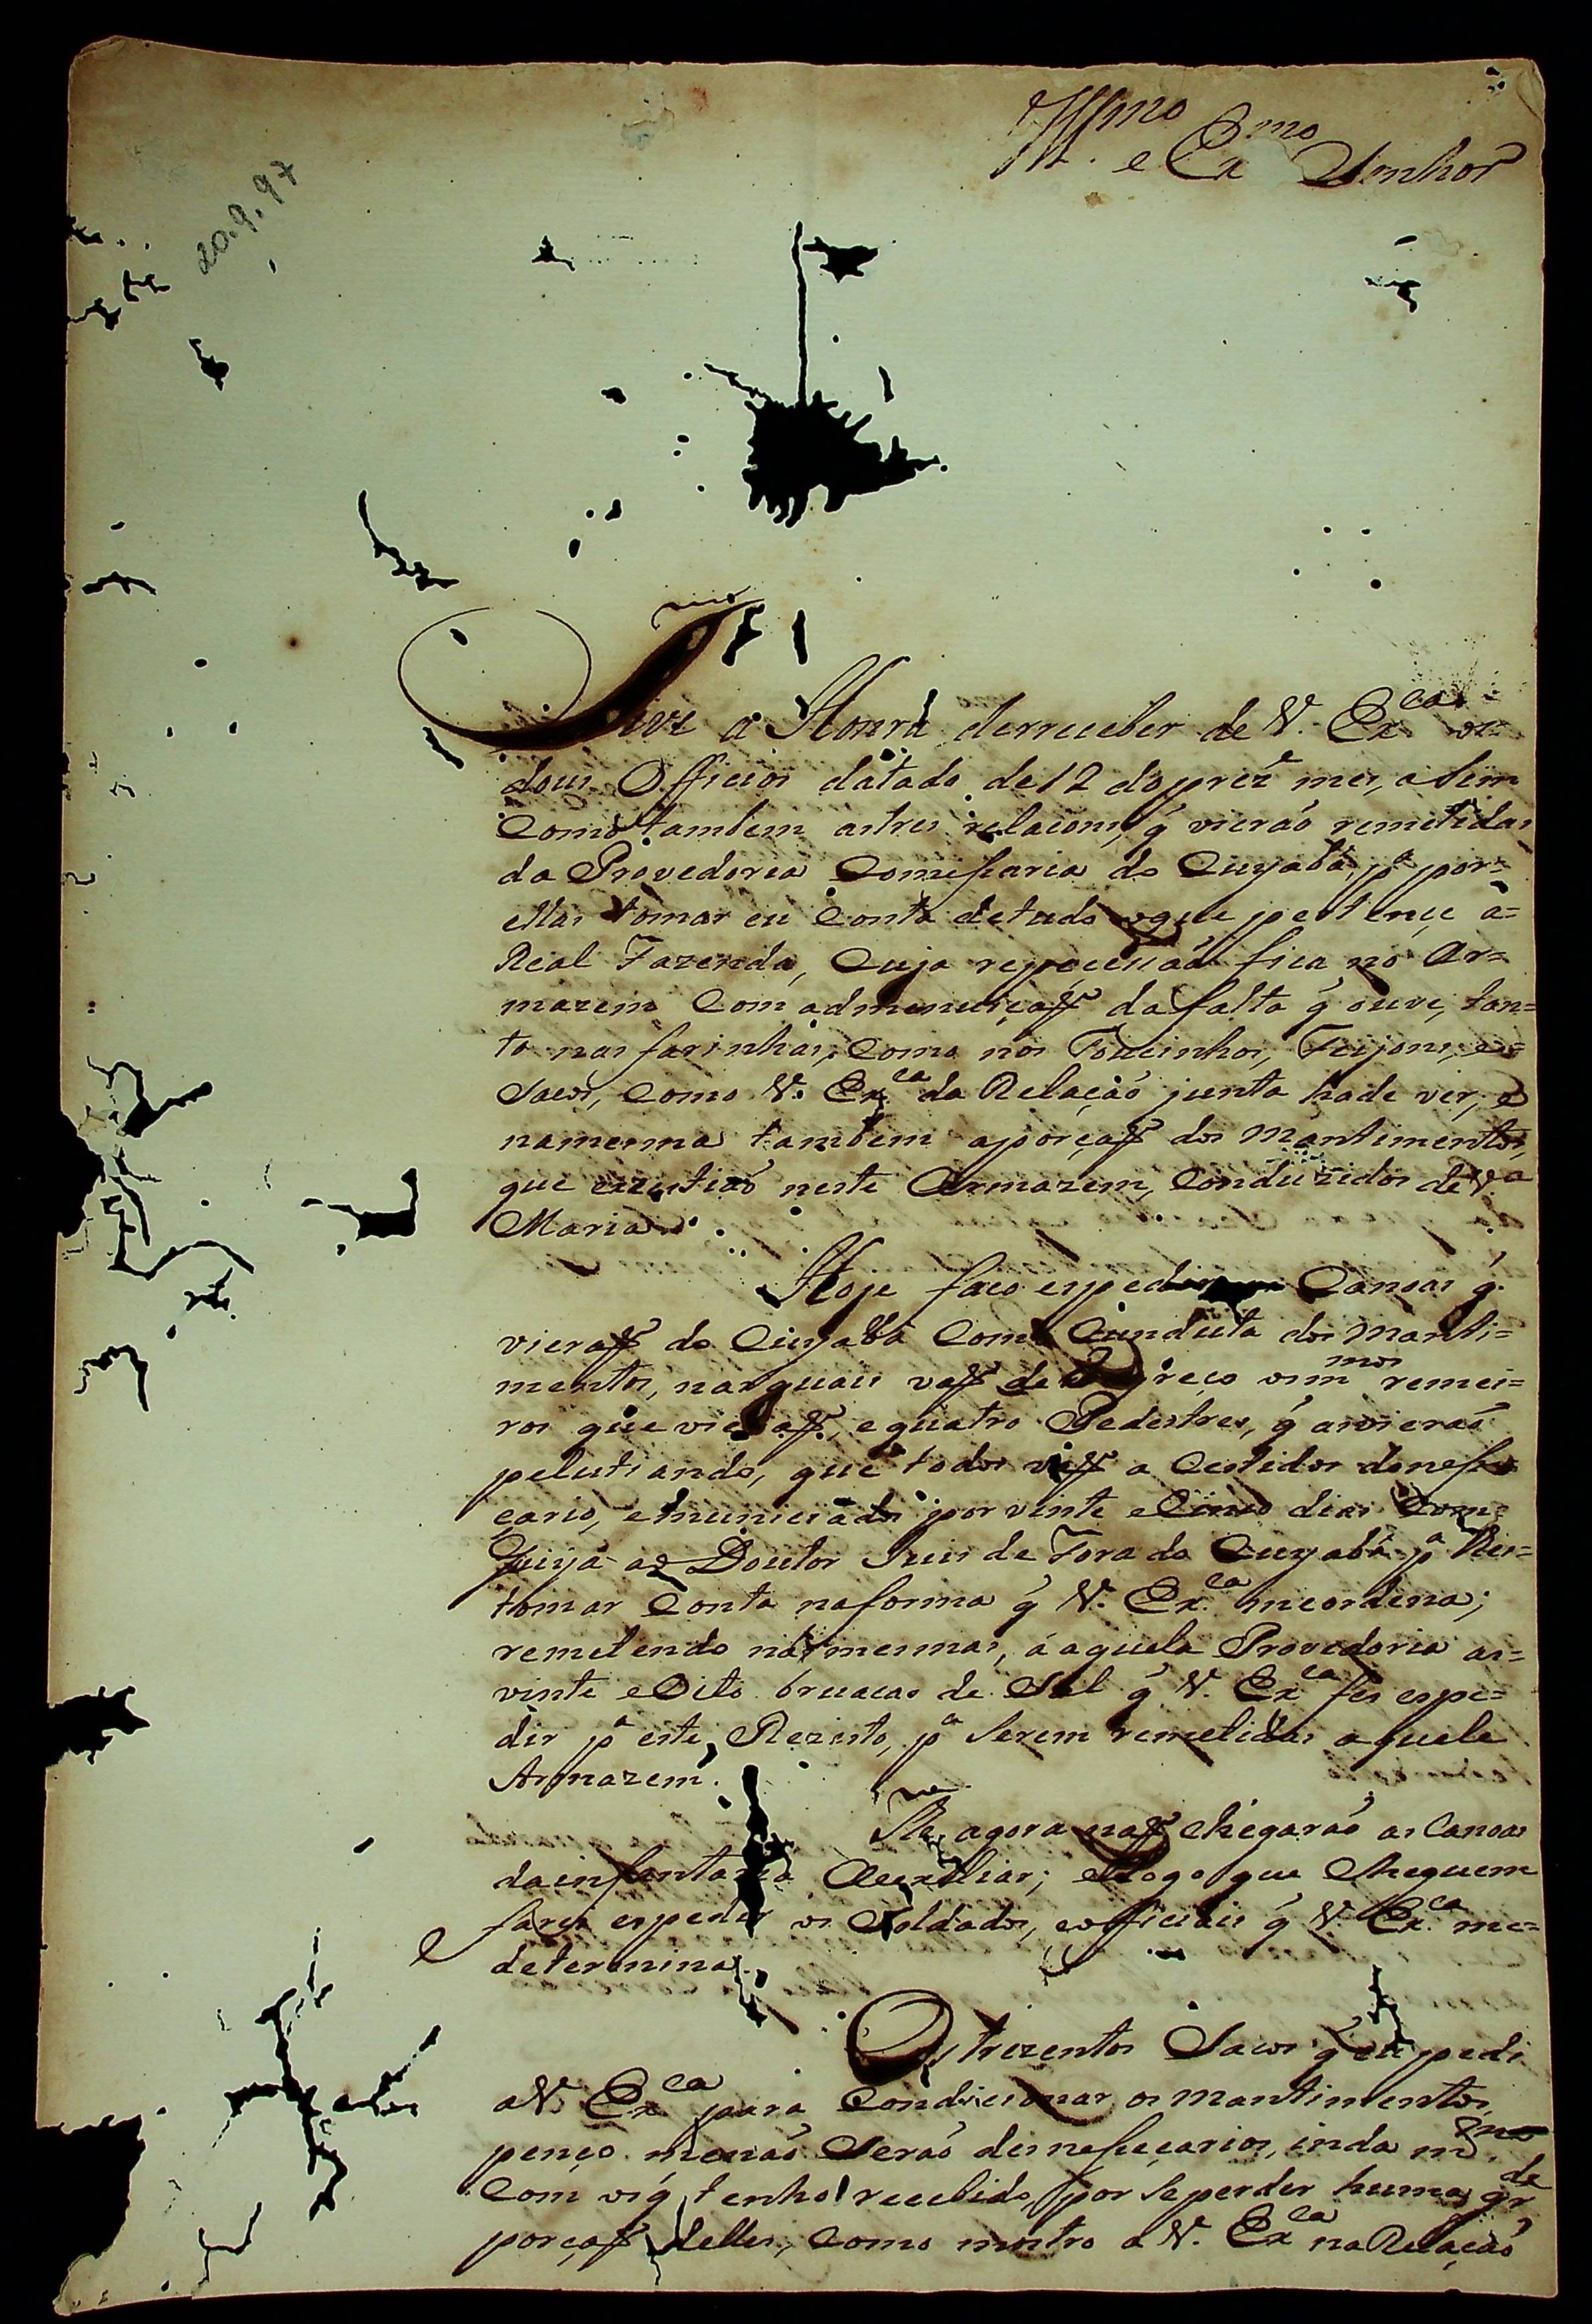 Illmo. e Exmo Senhor
20.9.97
Tive a Honra derreceber de V. Exca os
dous Officios datado de 12 do prezte mes, asim
Como tambem as tres relacoens, q̃ vieraó remetidas
da Provedoria Comissaria do Cuyabá, pa por=
ellas tomar eu Conta detudo oque pertence a=
Real Fazenda, Cuja fica no Ar=
mazem Com admenuiçaõ da falta q̃ ouve, tan=
to nas farinhas, Como nos Toucinhos, Feijons, e=
Sacos, Como V. Exca da Relaçaó junta hade ver, e
namesma tambem aporçaõ dos Mantimentos,
que neste Armazem, Conduzidos de Va
Maria.
Hoje faco espedir Canoas q̃
vieraõ do Cuyabá Com a Cunduta dos Manti=
mentos, nasquais vaõ de Regreço osmmos remei=
ros que vieraõ, e quatro Pedestres, q̃ asvieraó
pelutiando, que todos vaõ a Cestidos donesse=
çario, emuniciados por vinte eCinco dias Com
Guiya ao Doutor Juis de Fora do Cuyabá pa lhes=
tomar Conta naforma q̃ V. Exca meordena;
remetendo nas mesmas, á aquela Provedoria as=
vinte eOito bruacas de Sal q̃ V. Exca fes espe=
dir pa este Rezisto, pa Serem remetidas aquele
Armazem.
Ate agora naõ chegaraó as Canoas
dainfantaria Auxiliar; eLogo que Cheguem
farei espedir os Soldados, eofficiais q̃ V. Exca me=
determina.
Os trezentos Sacos q̃ eu pedi
aV. Exca para Condicionar os mantimentos,
penço menaó Seraó desnesseçarios, inda mmo
Com osq̃ tenho recebido, por Seperder huma grde
porçaõ delles, Como mostro a V. Exca na Relaçaó